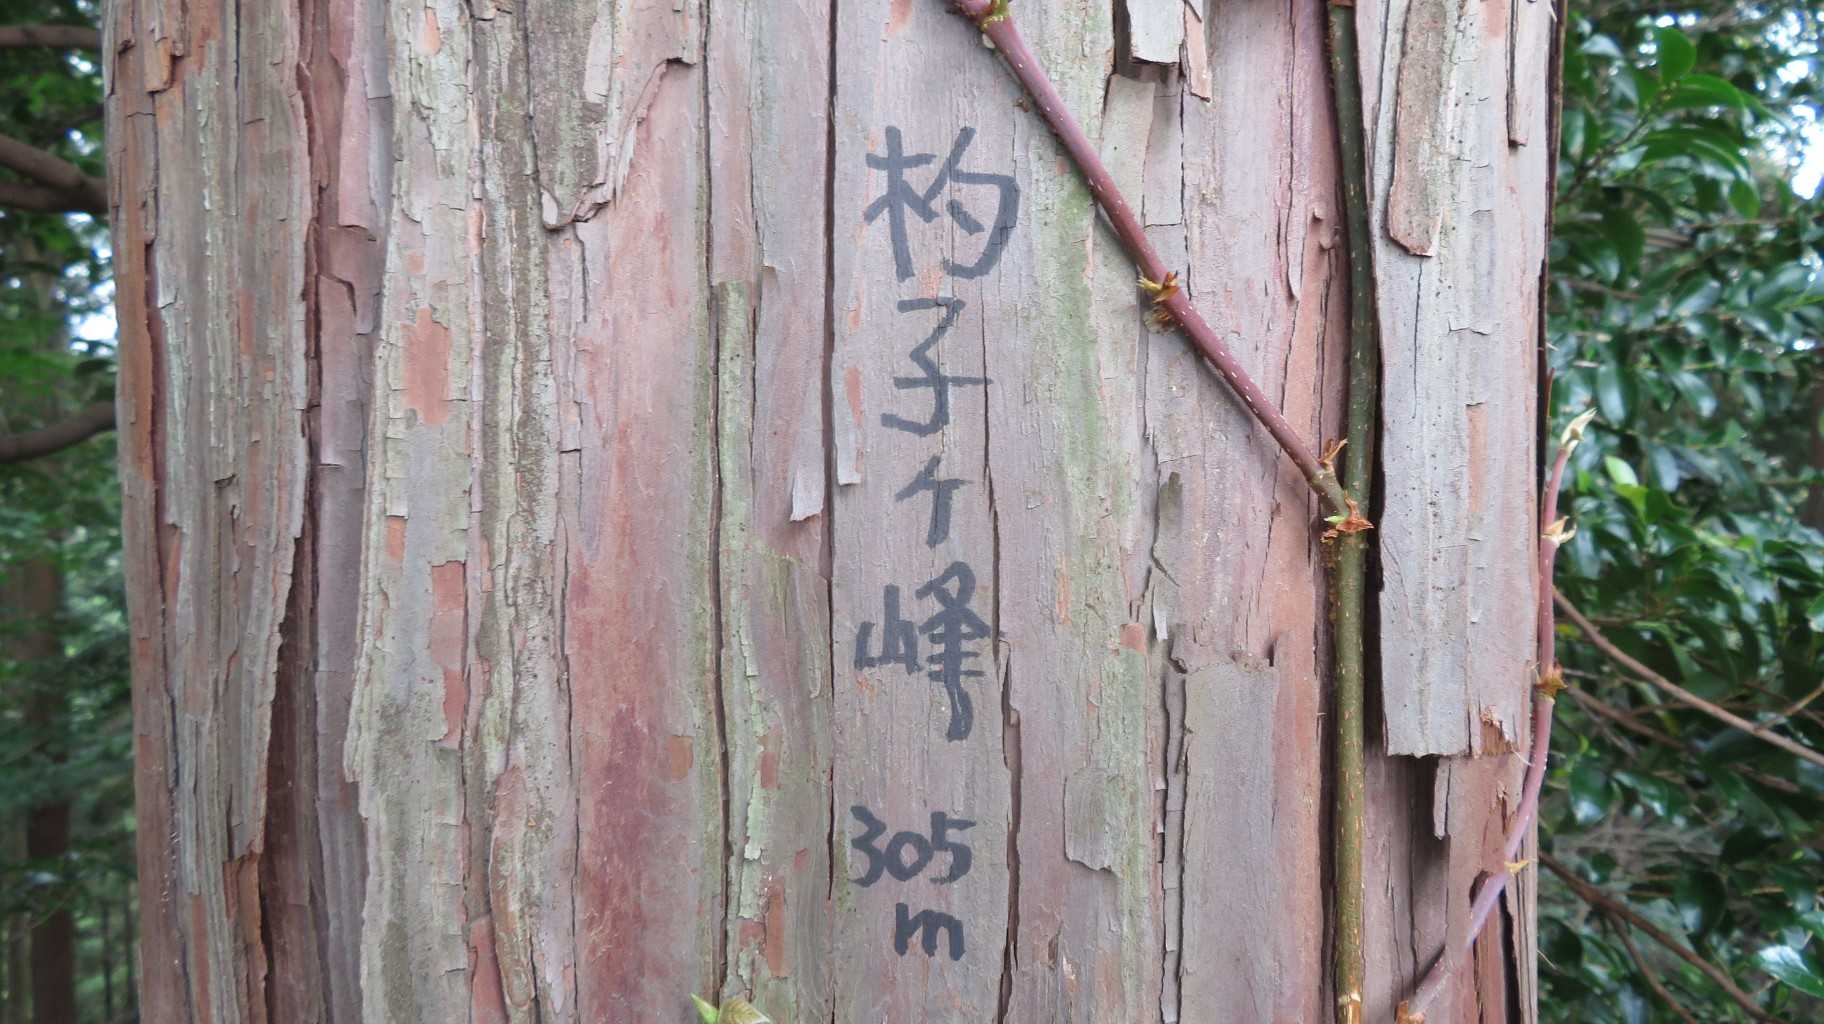 杓子ヶ峰
305
m